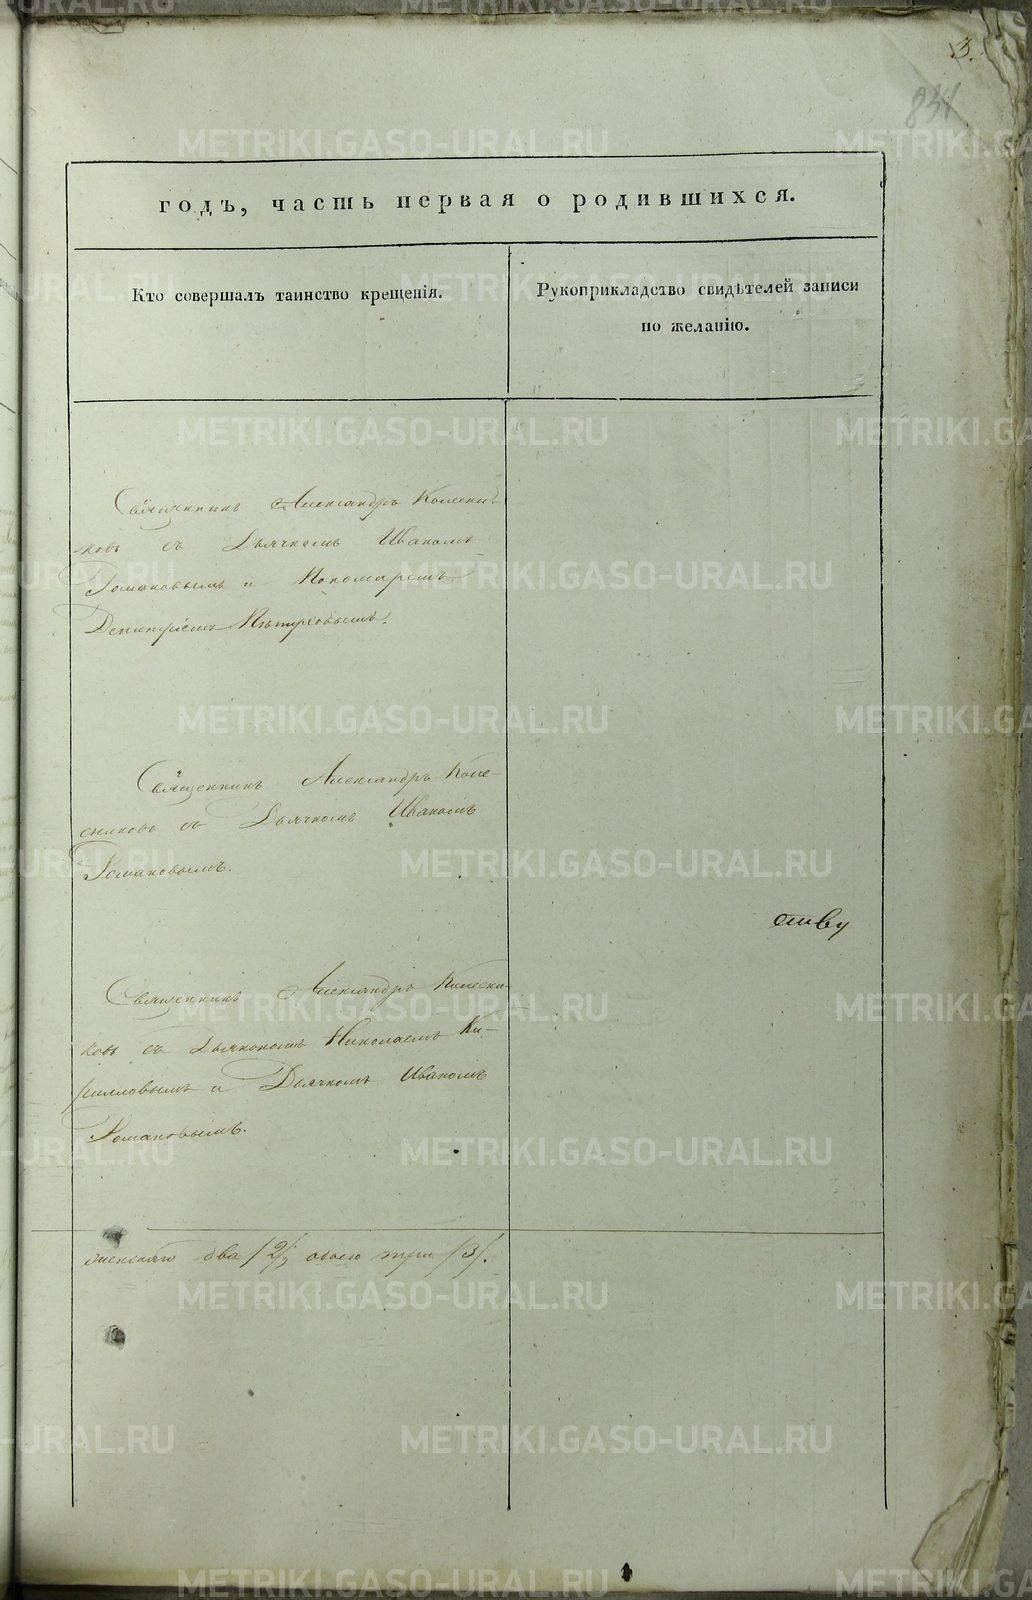 3.
834
годъ, часть первая о родившихся.
Кто совершалъ таинство крещенія.
Рукоприкладство свидѣтелей записи
по желанію.
Священникъ Александръ Колесни-
ковъ съ Дьячкомъ Иваномъ
Романовымъ и Пономаремъ
Димитріемъ Петровымъ.
Священникъ Александръ Коле-
сниковъ съ Дьячкомъ Иваномъ
Романовымъ.
ству
Священникъ Александръ Колесни-
ковъ съ Дьякономъ Николаемъ Ки-
рилловымъ и Дьячкомъ Иваномъ
Романовымъ.
женскаго два /2/, обоего три /3/.
METRIKI.GASO-URAL.RU